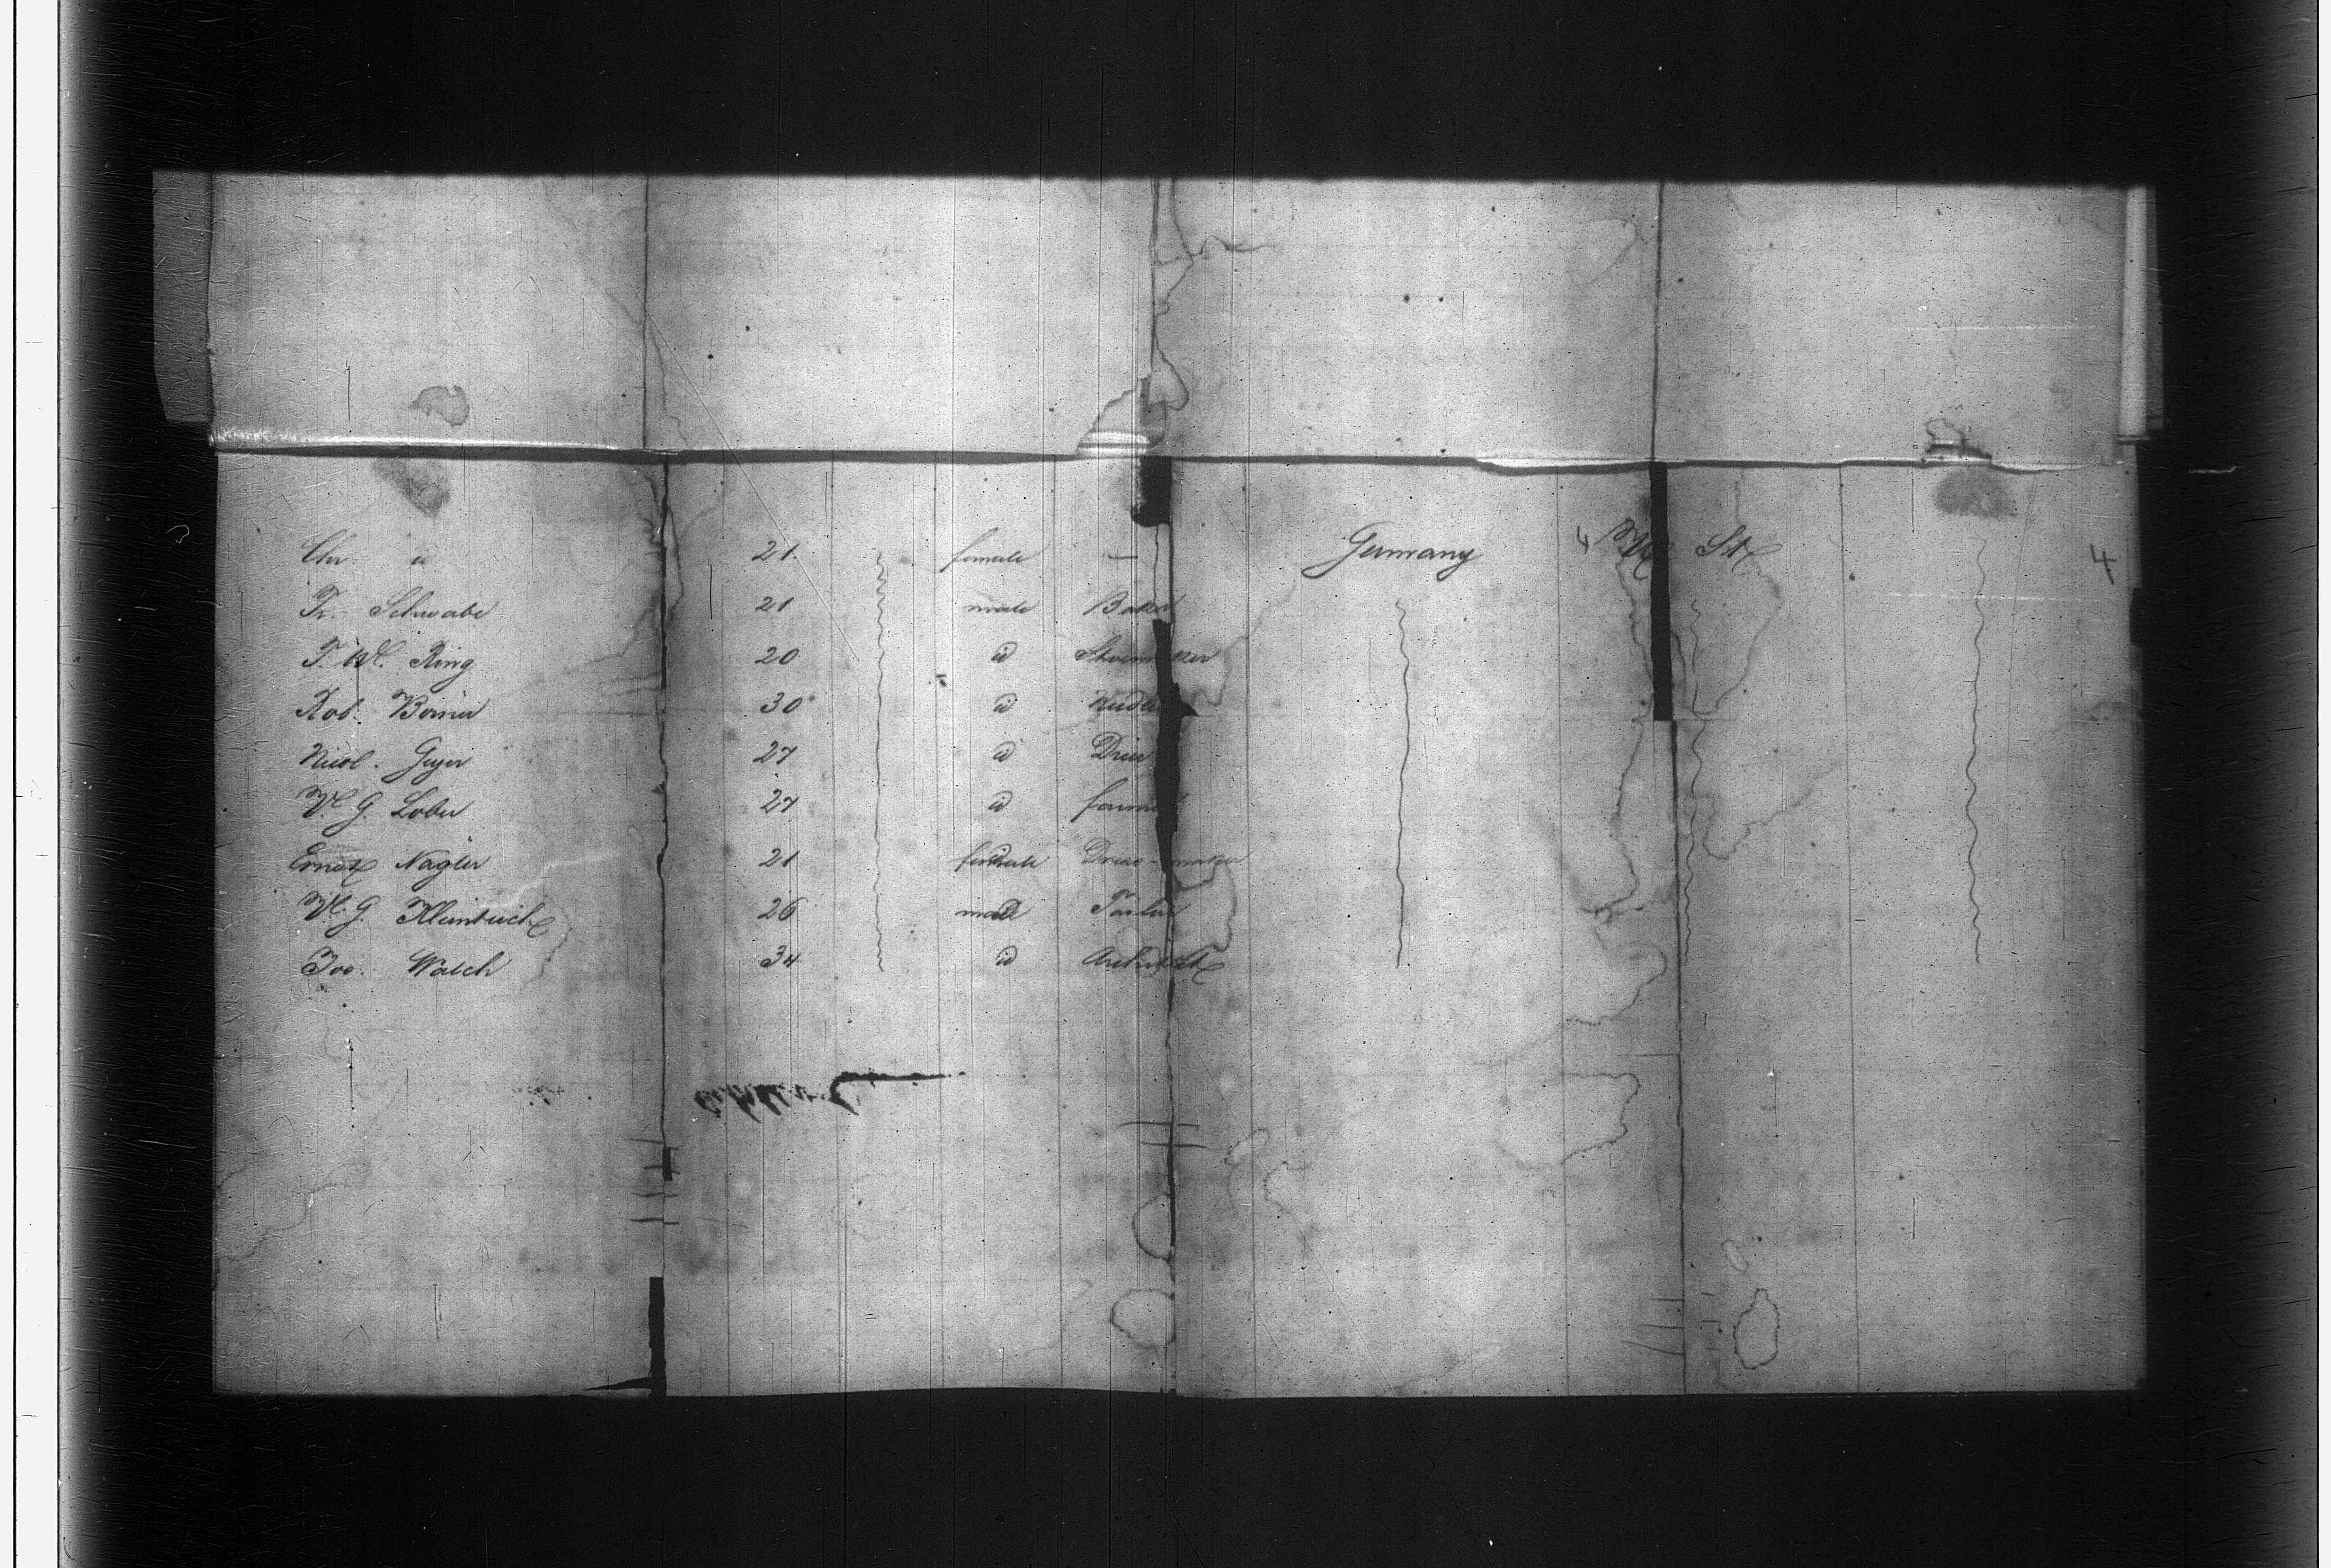 Chr. id 21 female — Germany St 4
Fr. Schwabe 21 male Baker
F. W. Ring 20 id Shoemaker
Rob. 30 id
Nicol. Geyer 27 id
W. G. Lober 27 id farmer
Ernst Nagler 21 female Dress-maker
W. G. 26 male Tailor
Walch 34 id Architect